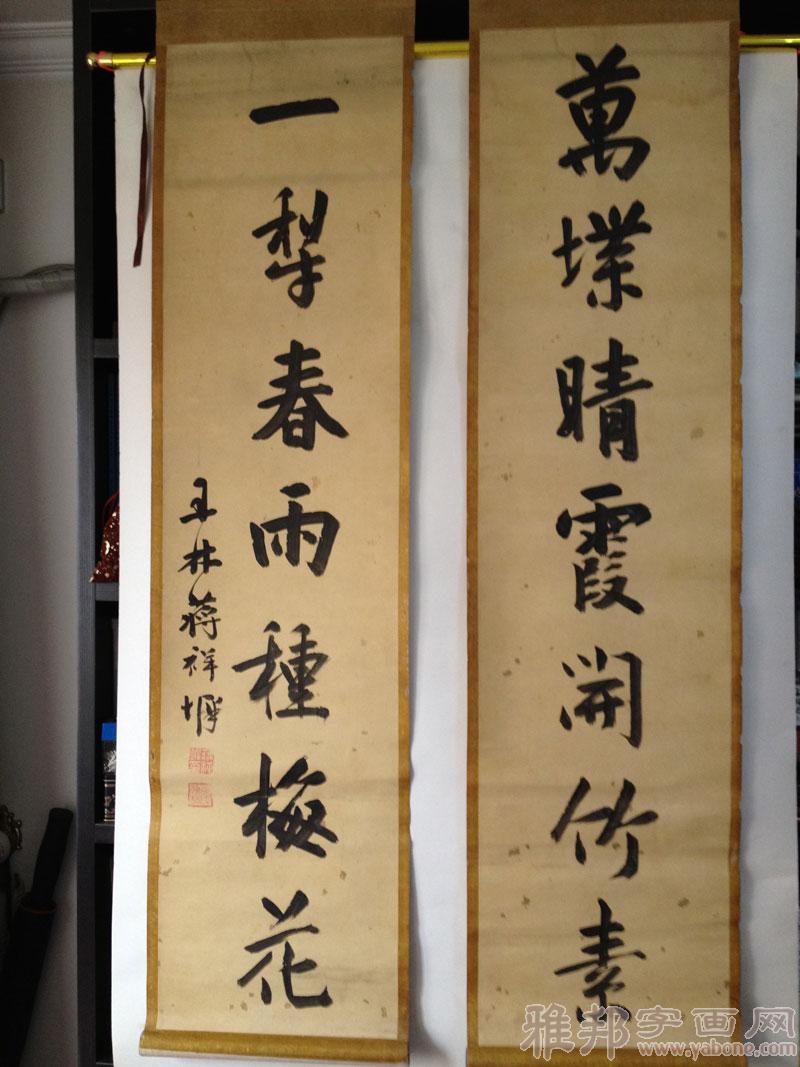 萬堞晴霞開竹素
一犁春雨種梅花
玉林蔣祥墀
雅邦字画网
www.yabone.com